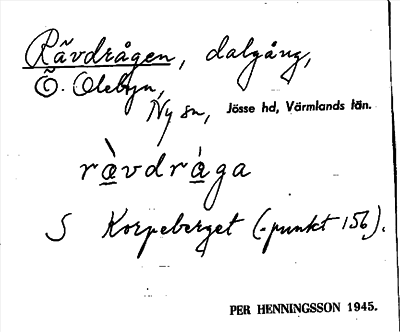 Rävdrågen, dalgång,
Ö. Olebyn,
Ny sn, Jösse hd, Värmlands län.
rä̀vdrá̱ga
S Korpeberget (-punkt 156).
PER HENNINGSSON 1945.